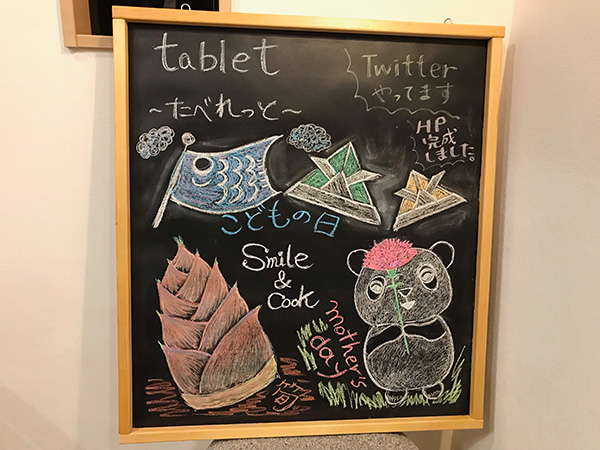 tablet
~たべれっと~
Twitter
やってます
HP
完成
しました。
こどもの日
Smile
&
Cook
mother's
day
筍